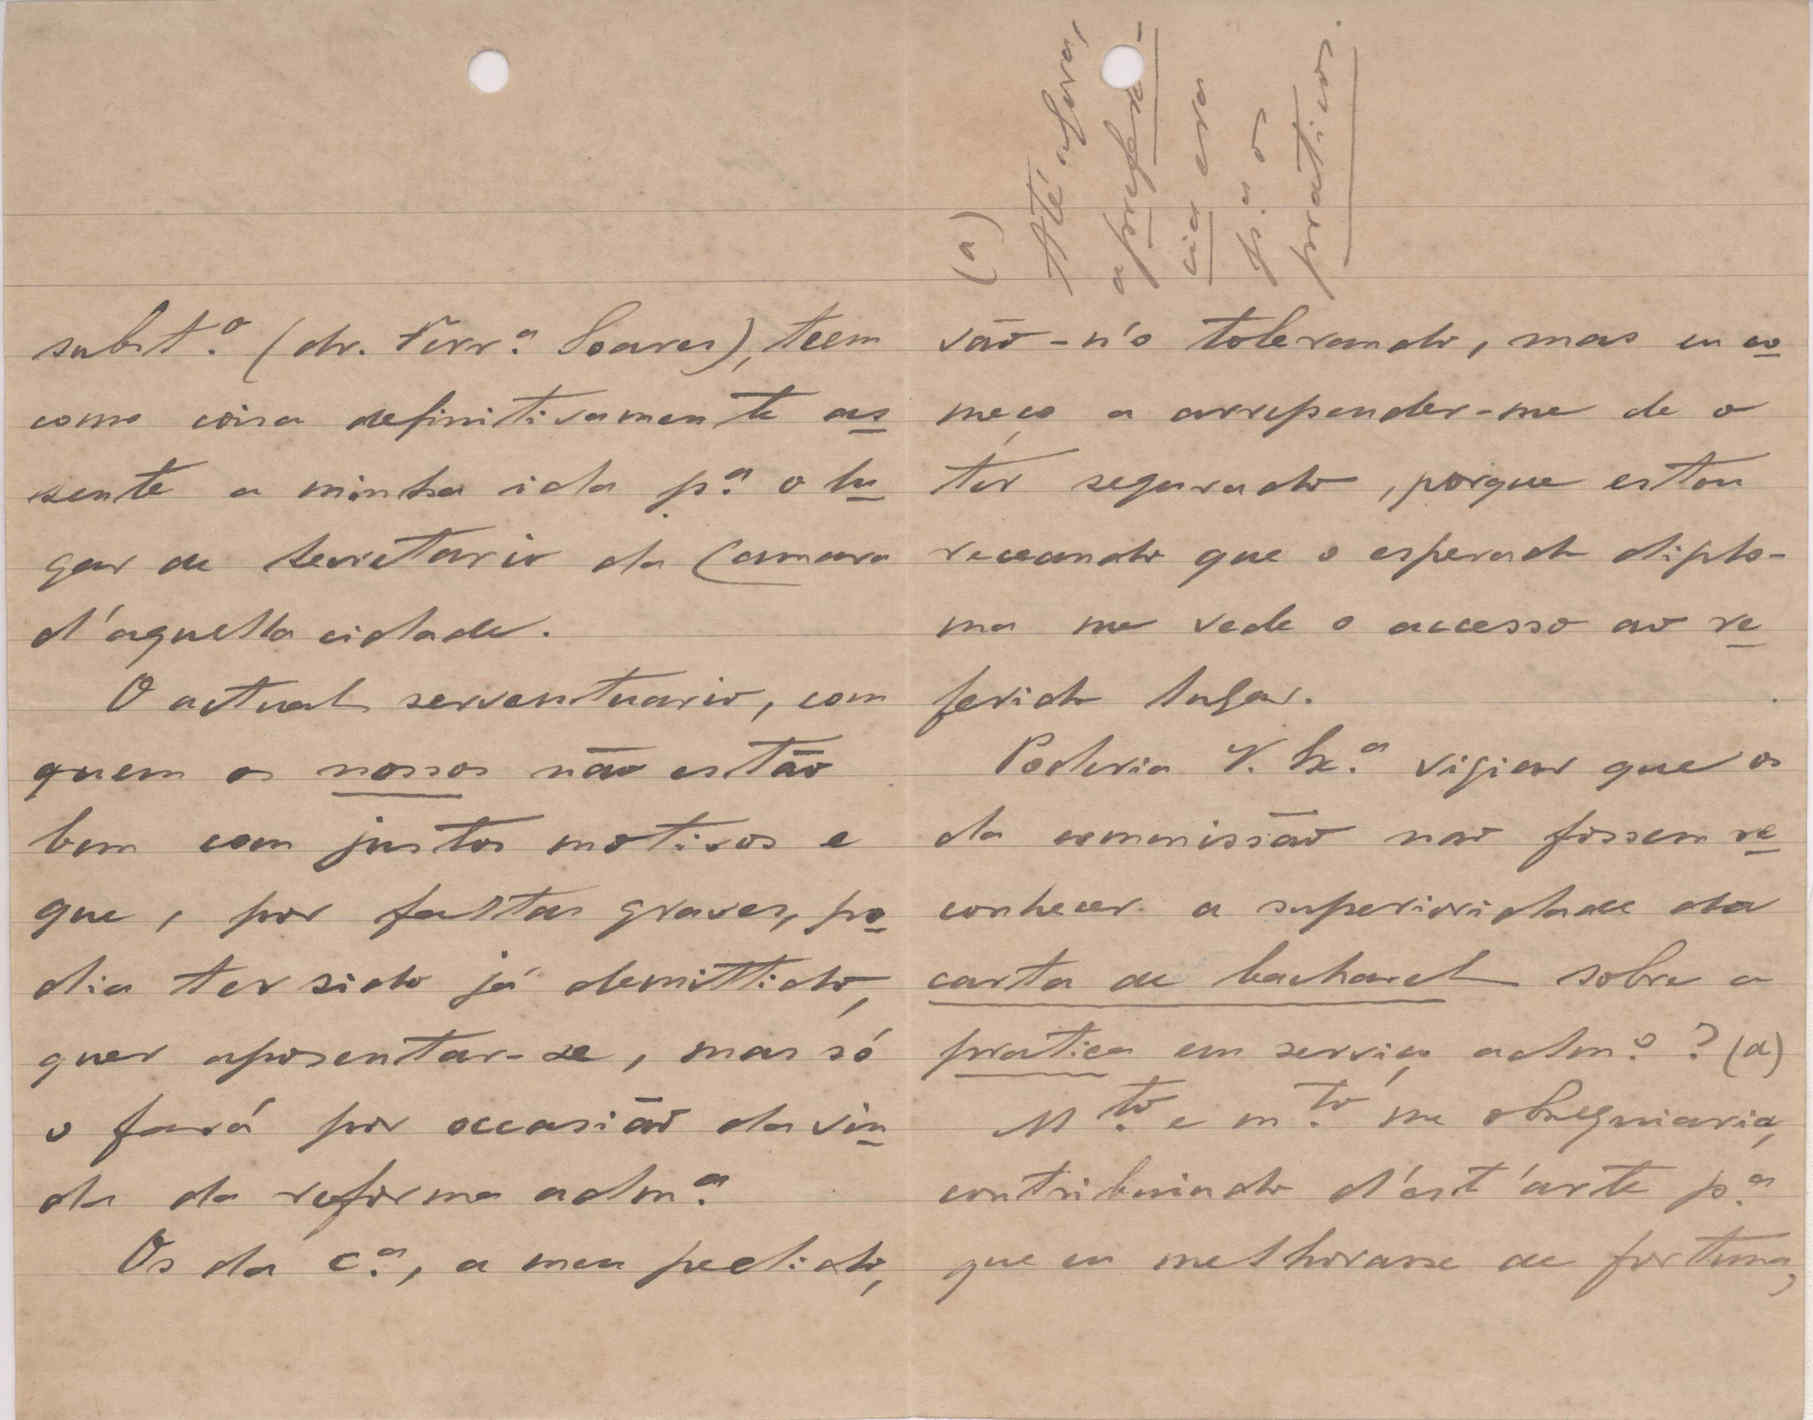 subst.º (dr. Ferr.ª Soares), teem
como coisa definitivamente as
sente a minha ida p.ª o lu
gar de secretario da Camara
d'aquella cidade.
O actual serventuario, com
quem os nossos não estão
bem com justos motivos e
que, por faltas graves, po
dia ter sido já demittido,
quer aposentar-se, mas só
o fará por occasião da vin
da da reforma adm.ª
Os da C.ª, a meu pedido,
(a)
Até agora,
a preferen-
cia era
p.ª os
praticos.
vão-n'o tolerando, mas eu co
meço a arrepender-me de o
ter segurado, porque estou
receando que o esperado diplo-
ma me vede o accesso ao re
ferido lugar.
Poderia V. Ex.ª vigiar que os
da commissão não fossem re
conhecer a superioridade da
carta de bacharel sobre a
pratica em serviço adm.º? (a)
M.to e m.to me obsequiaria,
contribuindo d'est'arte p.ª
que eu melhorasse de fortuna,